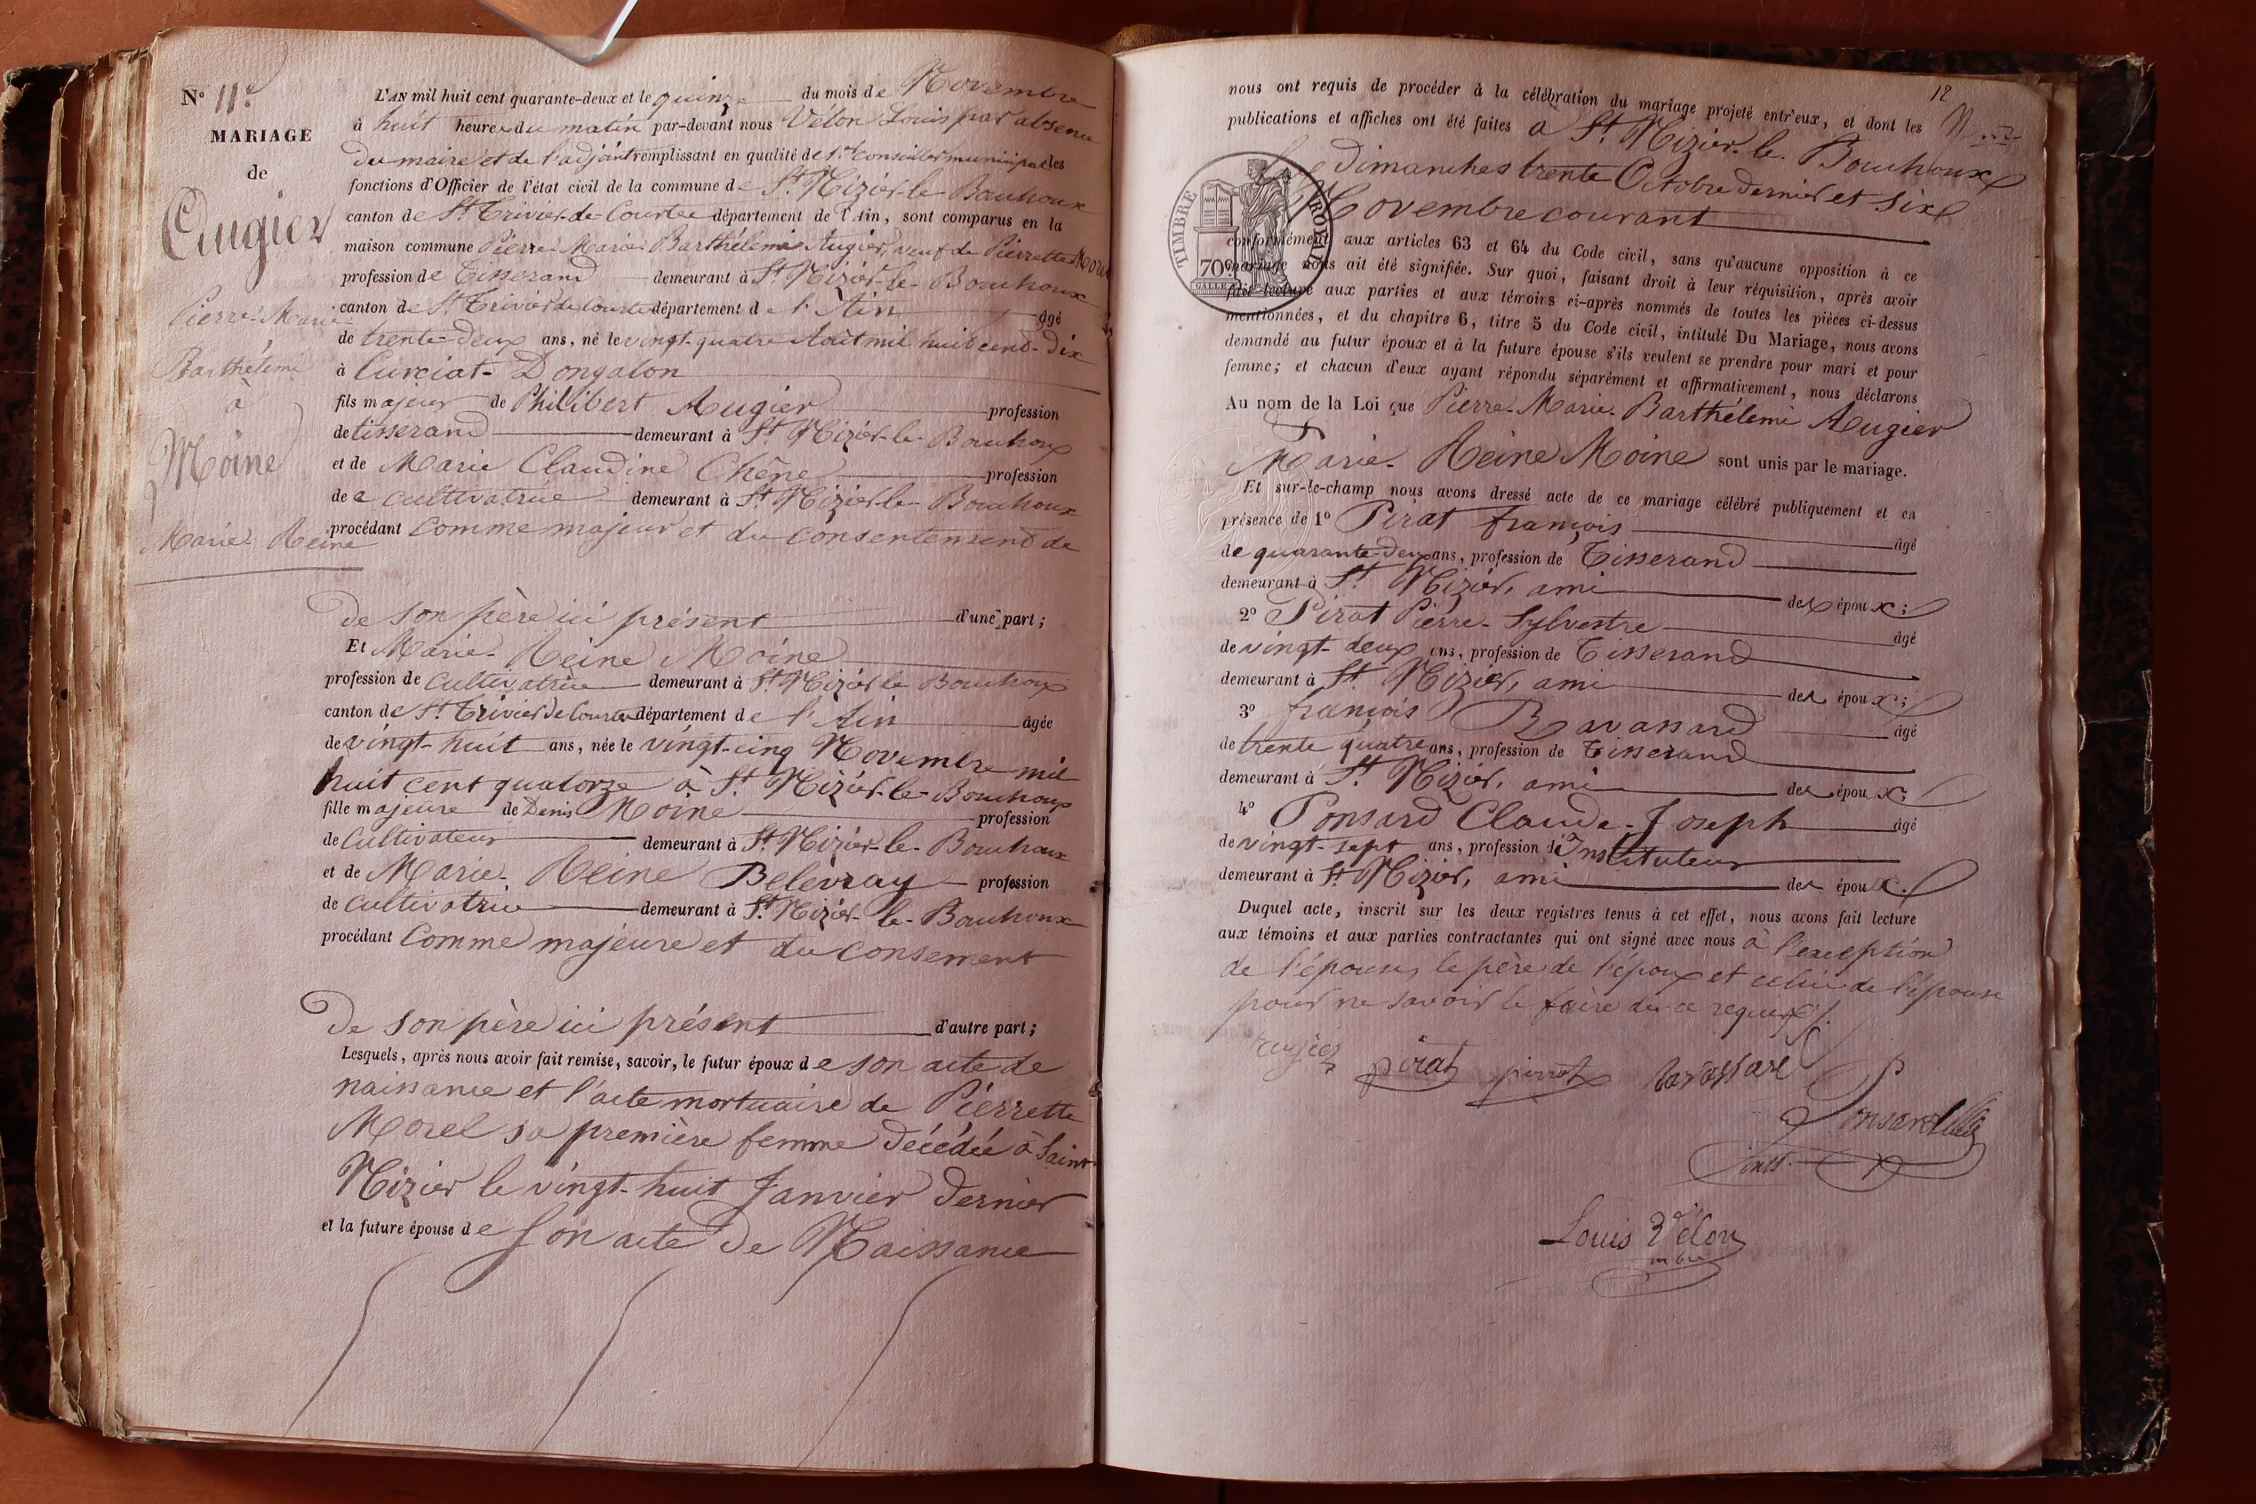 N° 11e
MARIAGE
de
Augier
Pierre-Marie
Barthélemi
à
Moine
Marie Reine
L'AN mil huit cent quarante-deux et le quinze du mois de Novembre
à huit heures du matin par-devant nous Vélon Louis par absence
du maire et de l'adjoint remplissant en qualité de 1er Conseiller municipal les
fonctions d'Officier de l'état civil de la commune de St Nizier-le-Bouhoux
canton de St Trivier-de-Courtes département de l'Ain, sont comparus en la
maison commune Pierre-Marie-Barthélemi Augier, veuf de Pierrette Morel
profession de Tisserand demeurant à St Nizier-le-Bouhoux
canton de St Trivier de Courtes département de l'Ain âgé
de trente-deux ans, né le vingt-quatre Août mil huit cent-dix
à Curciat-Dongalon
fils majeur de Philibert Augier profession
de tisserand demeurant à St Nizier-le-Bouhoux
et de Marie Claudine Chêne profession
de cultivatrice demeurant à St Nizier-le-Bouhoux
procédant comme majeur et du consentement de
de son père ici présent d'une part;
Et Marie-Reine Moine
profession de cultivatrice demeurant à St Nizier-le Bouhoux
canton de St Trivier de Courtes département de l'Ain âgée
de vingt-huit ans, née le vingt-cinq Novembre mil
huit cent quatorze à St Nizier-le-Bouhoux
fille majeure de Denis Moine profession
de Cultivateur demeurant à St Nizier-le-Bouhoux
et de Marie-Reine Belevray profession
de cultivatrice demeurant à St Nizier-le-Bouhoux
procédant comme majeure et du consement
de son père ici présent d'autre part;
Lesquels, après nous avoir fait remise, savoir, le futur époux de son acte de
naissance et l'acte mortuaire de Pierrette
Morel sa première femme décédée à Saint
Nizier le vingt-huit Janvier dernier
et la future épouse de son acte de Naissance
12
nous ont requis de procéder à la célébration du mariage projeté entr'eux, et dont les
publications et affiches ont été faites à St Nizier-le-Bouhoux
dimanches trente Octobre dernier et six
Novembre courant
TIMBRE ROYAL
70c
conformément aux articles 63 et 64 du Code civil, sans qu'aucune opposition à ce
mariage nous ait été signifiée. Sur quoi, faisant droit à leur réquisition, après avoir
fait lecture aux parties et aux témoins ci-après nommés de toutes les pièces ci-dessus
mentionnées, et du chapitre 6, titre 5 du Code civil, intitulé Du Mariage, nous avons
demandé au futur époux et à la future épouse s'ils veulent se prendre pour mari et pour
femme; et chacun d'eux ayant répondu séparément et affirmativement, nous déclarons
Au nom de la Loi que Pierre-Marie-Barthélemi Augier
Marie-Reine Moine sont unis par le mariage.
Et sur-le-champ nous avons dressé acte de ce mariage célébré publiquement et en
présence de 1° Pirat françois âgé
de quarante-deux ans, profession de Tisserand
demeurant à St Nizier, ami des époux;
2° Pirat Pierre-Sylvestre âgé
de vingt-deux ans, profession de Tisserand
demeurant à St Nizier, ami des époux;
3° françois Ravassard âgé
de trente quatre ans, profession de Tisserand
demeurant à St Nizier, ami des époux;
4° Ponsard Claude-Joseph âgé
de vingt-sept ans, profession d'Instituteur
demeurant à St Nizier, ami des époux.
Duquel acte, inscrit sur les deux registres tenus à cet effet, nous avons fait lecture
aux témoins et aux parties contractantes qui ont signé avec nous à l'exception
de l'épouse, le père de l'époux et celui de l'épouse
pour ne savoir le faire de ce requis.
augier pirat pirrat ravassard
Ponsard
Inst.
Louis Vélon